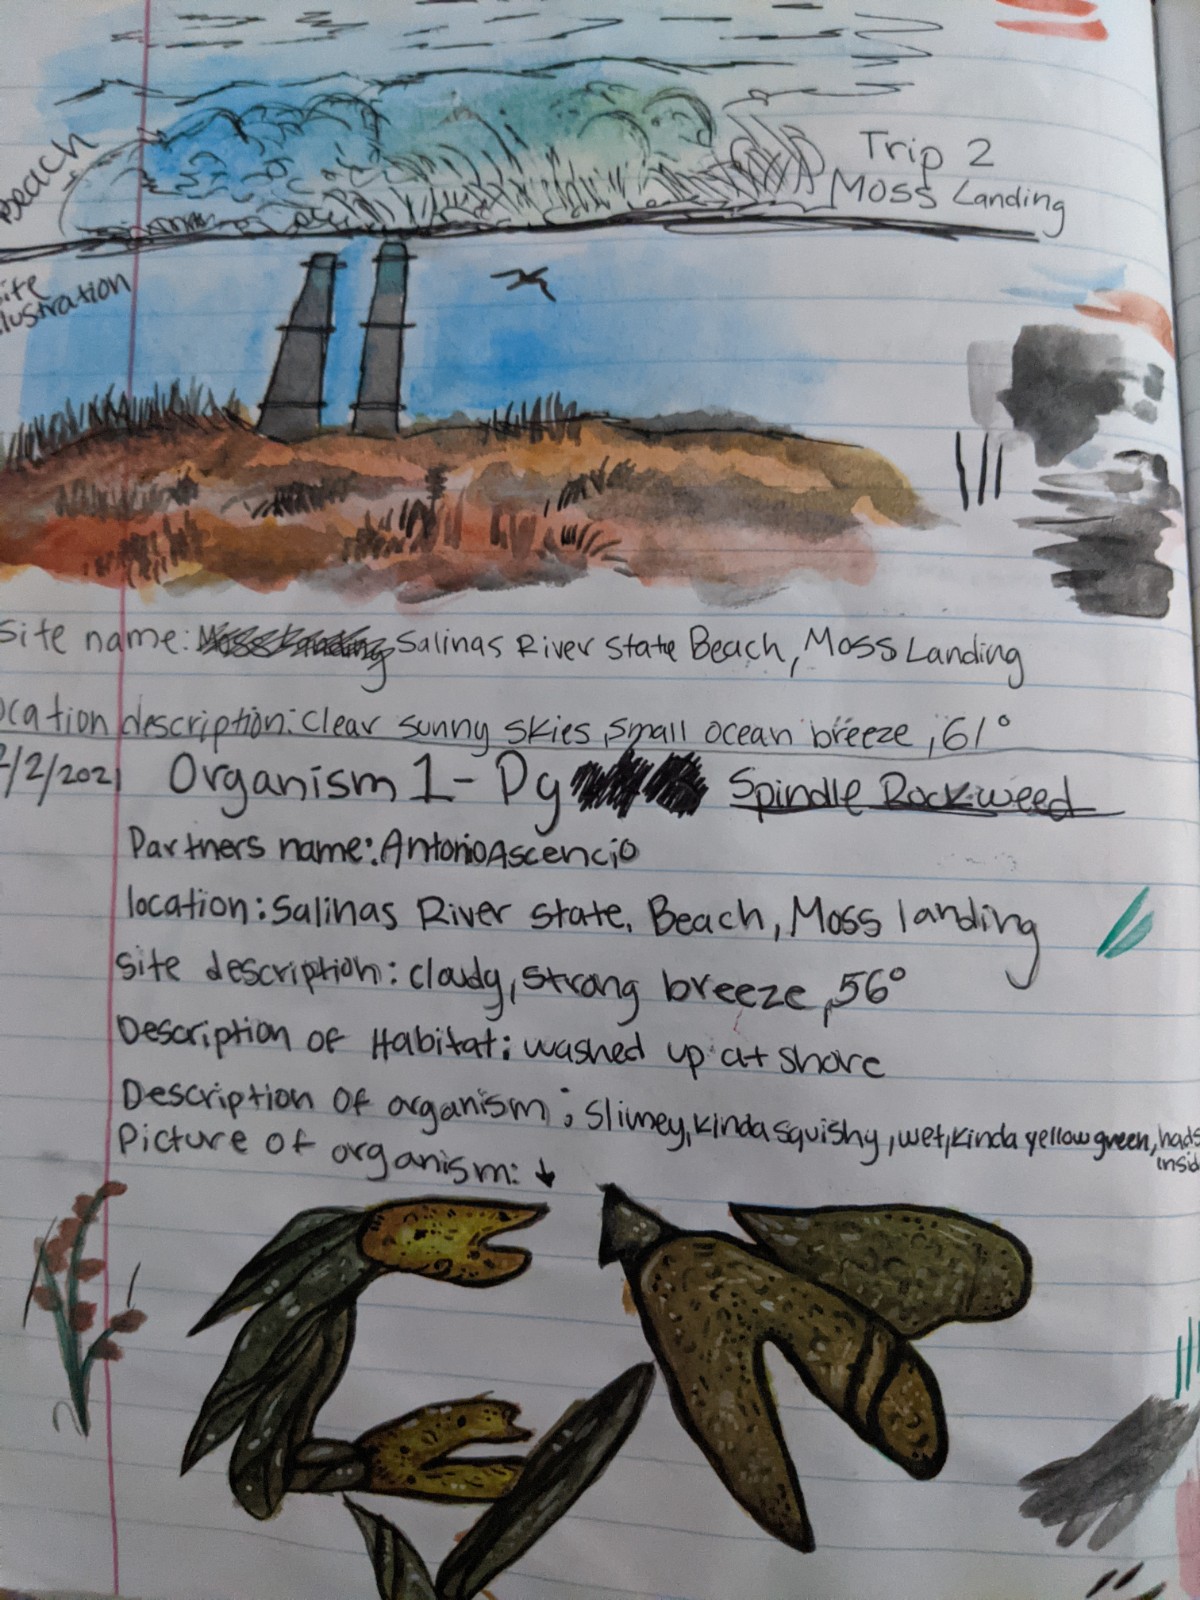 Beach
Trip 2
Moss Landing
ite
lustration
Site name: Salinas River State Beach, Moss Landing
ocation description: Clear sunny skies, small ocean breeze, 61°
/2/2021 Organism 1 - Dg Spindle Rockweed
Partners name: Antonio Ascencio
location: Salinas River state, Beach, Moss landing
Site description: cloudy, strong breeze, 56°
Description of Habitat: washed up at shore
Description of organism: Slimey, kinda squishy, wet, kinda yellow green,
Picture of organism: ↓